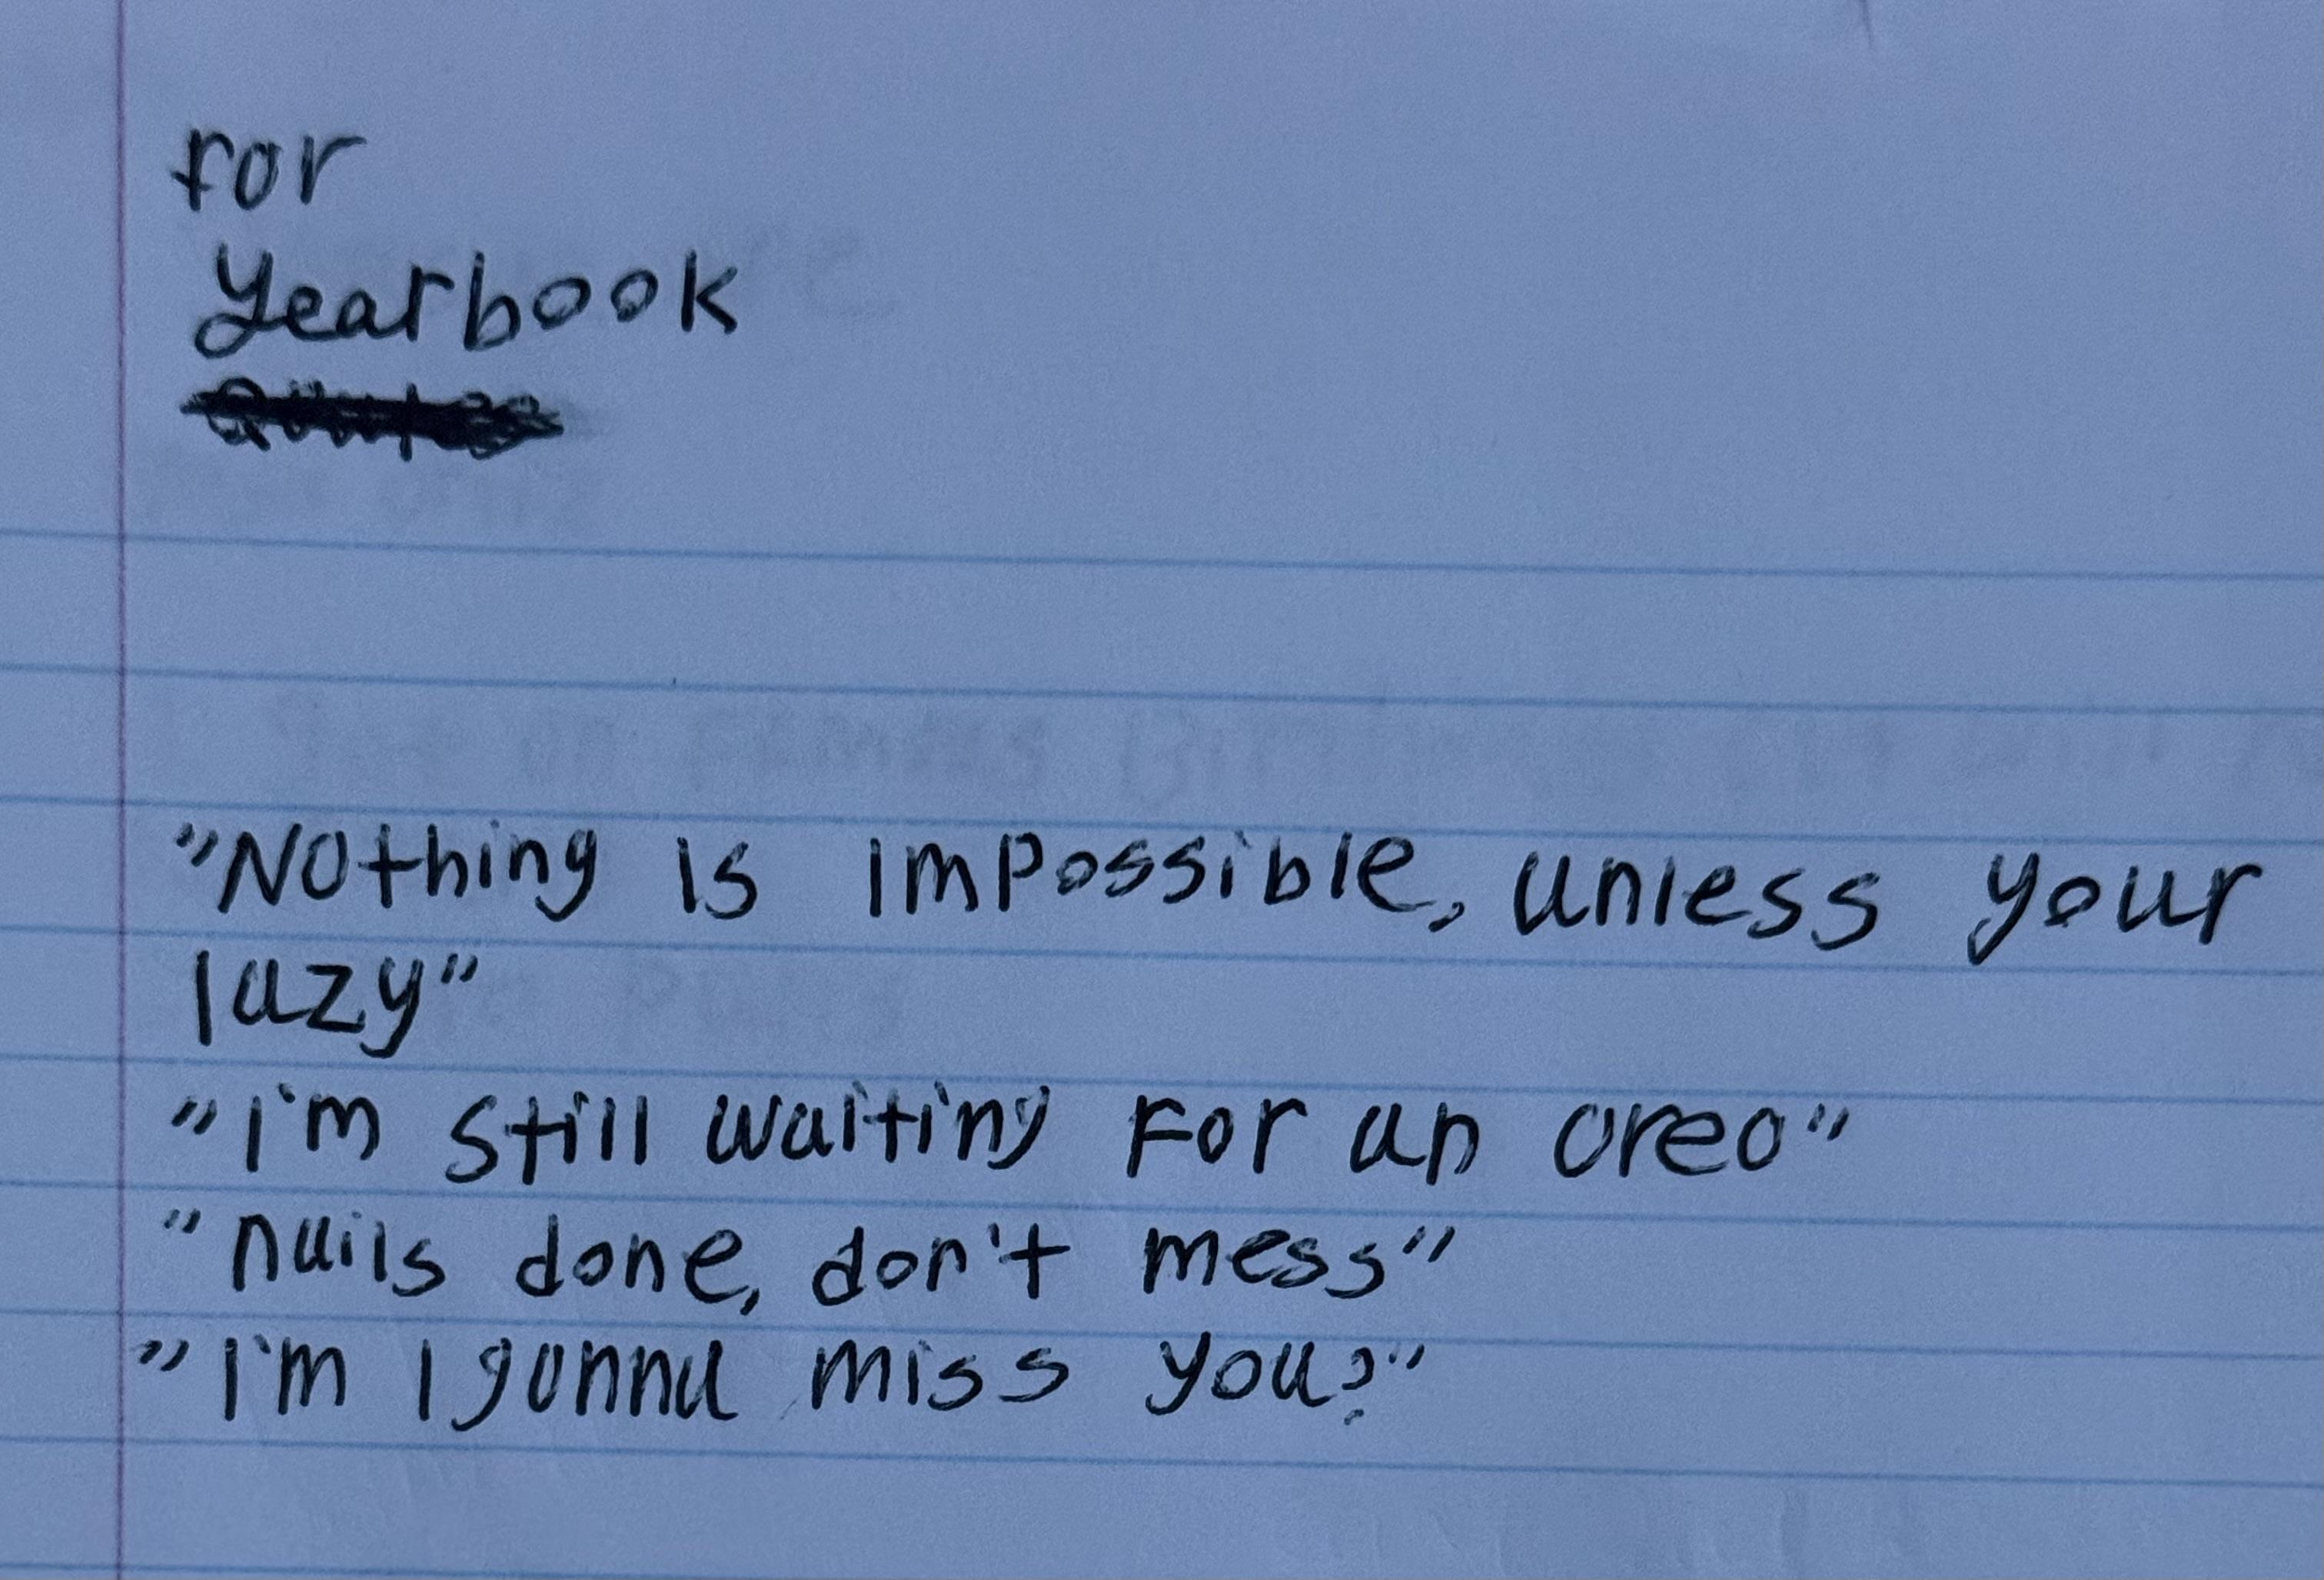 for
Yearbook
"Nothing is impossible, unless your
lazy"
"I'm still waiting for an oreo"
"nails done, don't mess"
"I'm I gonna miss you?"